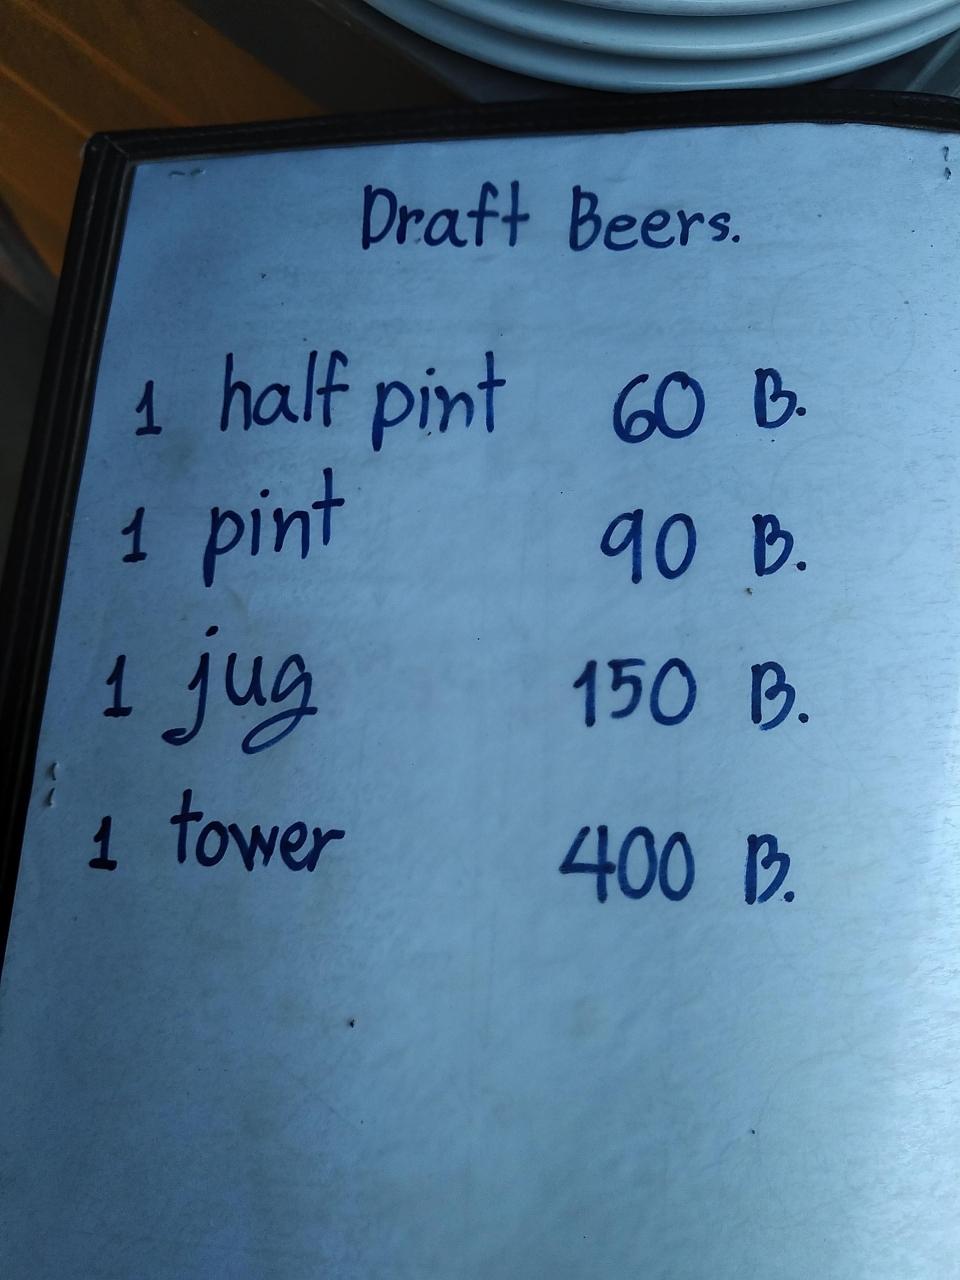 Draft Beers.
1 half pint 60 B.
1 pint 90 B.
1 jug 150 B.
1 tower 400 B.